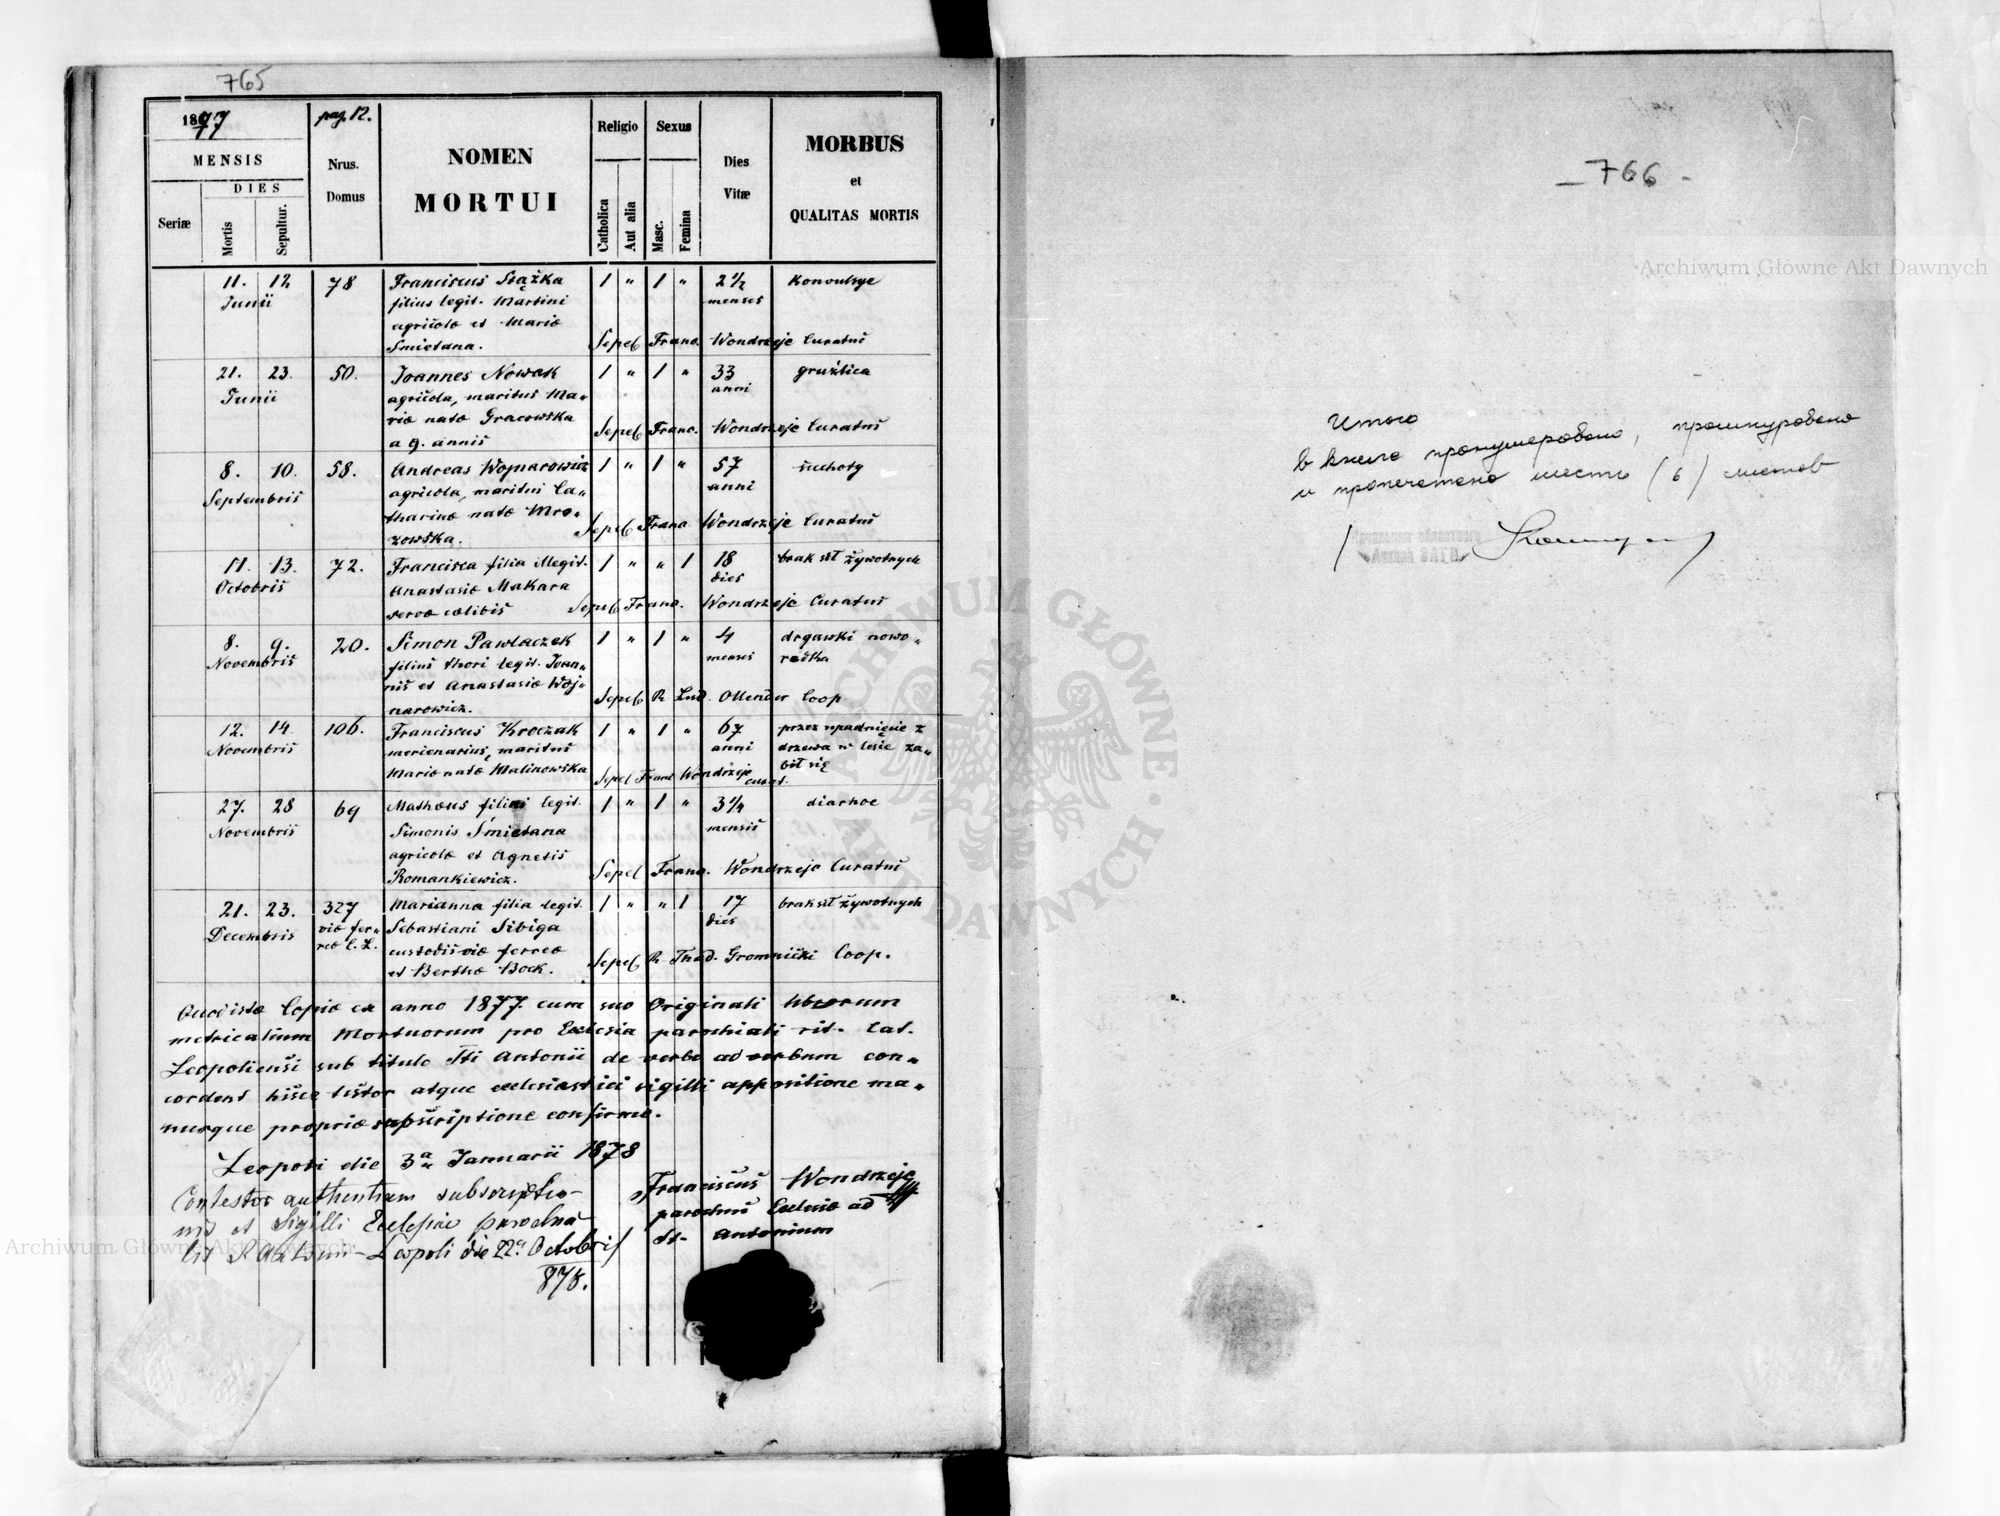 765
1877
pag. 12.
MENSIS
Nrus. Domus
NOMEN MORTUI
Religio
Sexus
Dies Vitæ
MORBUS
et
QUALITAS MORTIS
Seriæ
DIES
Mortis
Sepultur.
Catholica
Aut alia
Masc.
Femina
11. 12 78 Franciscus Siążka 1 " 1 " 2 1/2 Konvulsye
Junii filius legit. Martini menses
agricolæ et Mariæ
Śmietana. Sepel. Franc. Wondrzeje Curatus
21. 23. 50. Joannes Nowak 1 " 1 " 33 gruźlica
Junii agricola, maritus Ma„ anni
riæ natæ Gracowska
a 9. annis Sepel. Franc. Wondrzeje Curatus
8. 10. 58. Andreas Wojnarowicz 1 " 1 " 57 suchoty
Septembris agricola, maritus Ca„ anni
tharinæ natæ Mro„
zowska. Sepel. Franc. Wondrzeje Curatus
11. 13. 72. Francisca filia illegit. 1 " " 1 18 brak sił żywotnych
Octobris Anastasiæ Makara dies
servæ cælibis Sepel. Franc. Wondrzeje Curatus
8. 9. 20. Simon Pawlaczek 1 " 1 " 4 drgawki nowo„
Novembris filius thori legit. Joan„ menses rodka
nis et Anastasiæ Woj„
narowicz. Sepel. R. Lud. Ollender Coop
12. 14. 106. Franciscus Kroczak 1 " 1 " 67 przez upadnięcie z
Novembris mercenarius, maritus anni drzewa w lesie za„
Mariæ natæ Malinowska Sepel Franc Wondrzeje curat. bił się
27. 28 69 Mathæus filius legit. 1 " 1 " 3 1/4 diarhoe
Novembris Simonis Śmietana mensis
agricolæ et Agnetis
Romankiewicz. Sepel Franc. Wondrzeje Curatus
21. 23. 327 Marianna filia legit. 1 " " 1 17 brak sił żywotnych
Decembris viæ fer„ Sebastiani Sibiga dies
reæ C. L. custodis viæ ferreæ
et Berthæ Bock. Sepel. R. Thad. Gromnicki Coop.
Quod istæ Copiæ ex anno 1877. cum suo Originali librorum
metricalium Mortuorum pro Ecclesia parochiali rit. lat.
Leopoliensi sub titulo Sti Antonii de verbo ad verbum con„
cordent hisce testor atque ecclesiastici sigilli appositione ma„
nusque propriæ subscriptione confirmo.
Leopoli die 3a Januarii 1878
Contestor authenticam subscriptio-
nis et Sigilli Ecclesiæ parochia
Leopoli die 22a Octobris
878.
Franciscus Wondrzeje
parochus Ecclesiæ ad
St. Antonium
- 766 -
Итого
в книге пронумеровано, прошнуровано
и пропечатано шесть (6) листов
Archiwum Główne Akt Dawnych
Archiwum Główne Akt Dawnych
ARCHIWUM GŁÓWNE AKT DAWNYCH